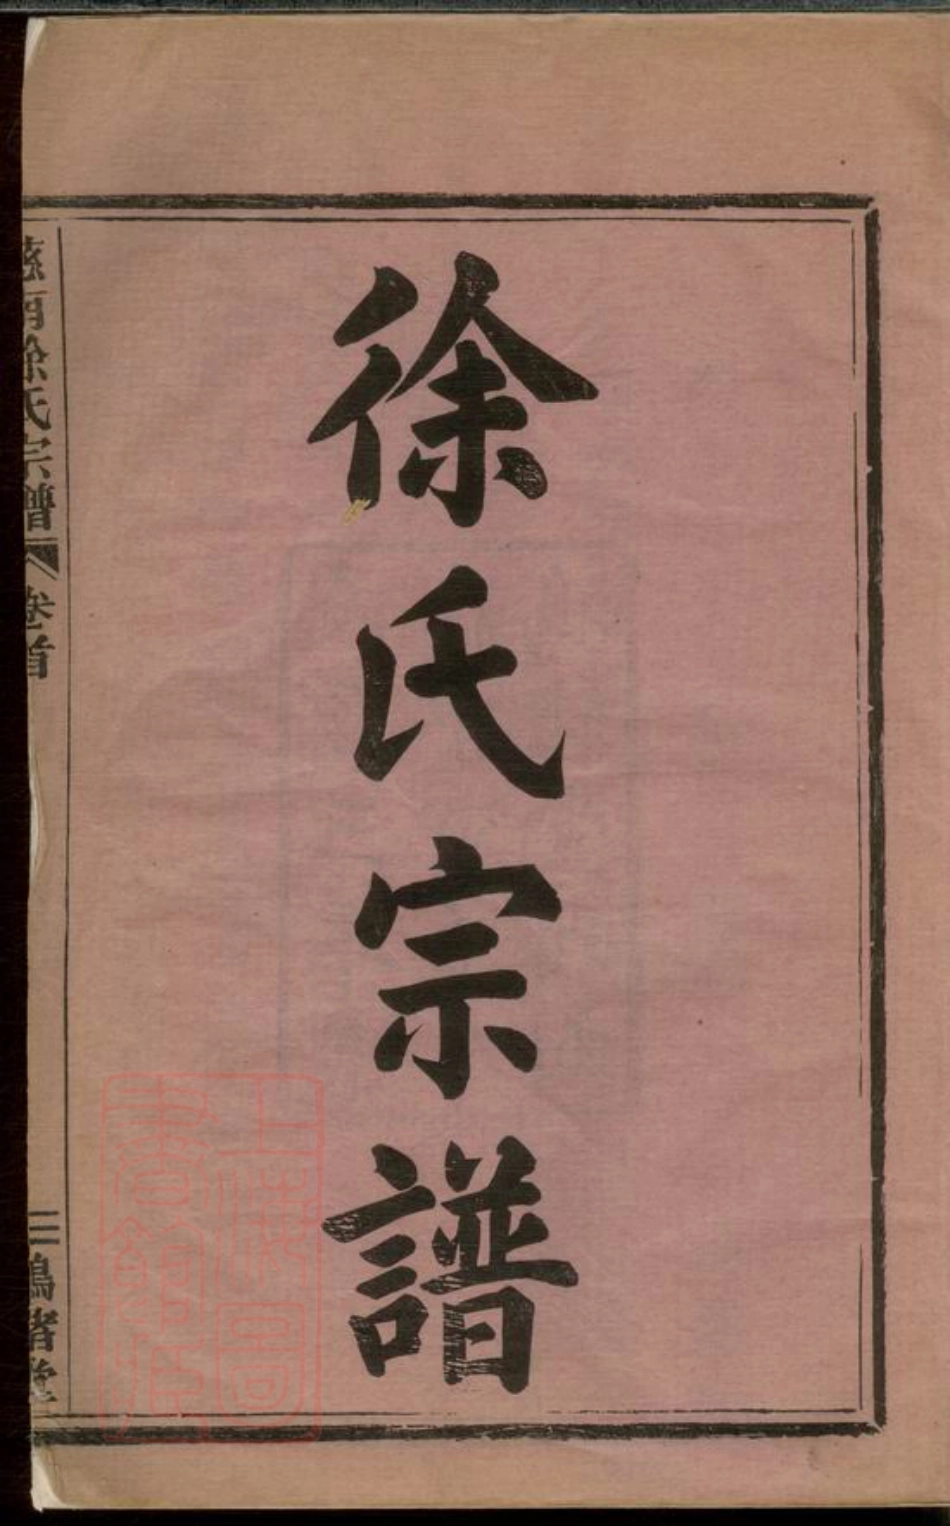 徐氏宗譜
慈西徐氏宗譜 卷首
上海圖書館藏